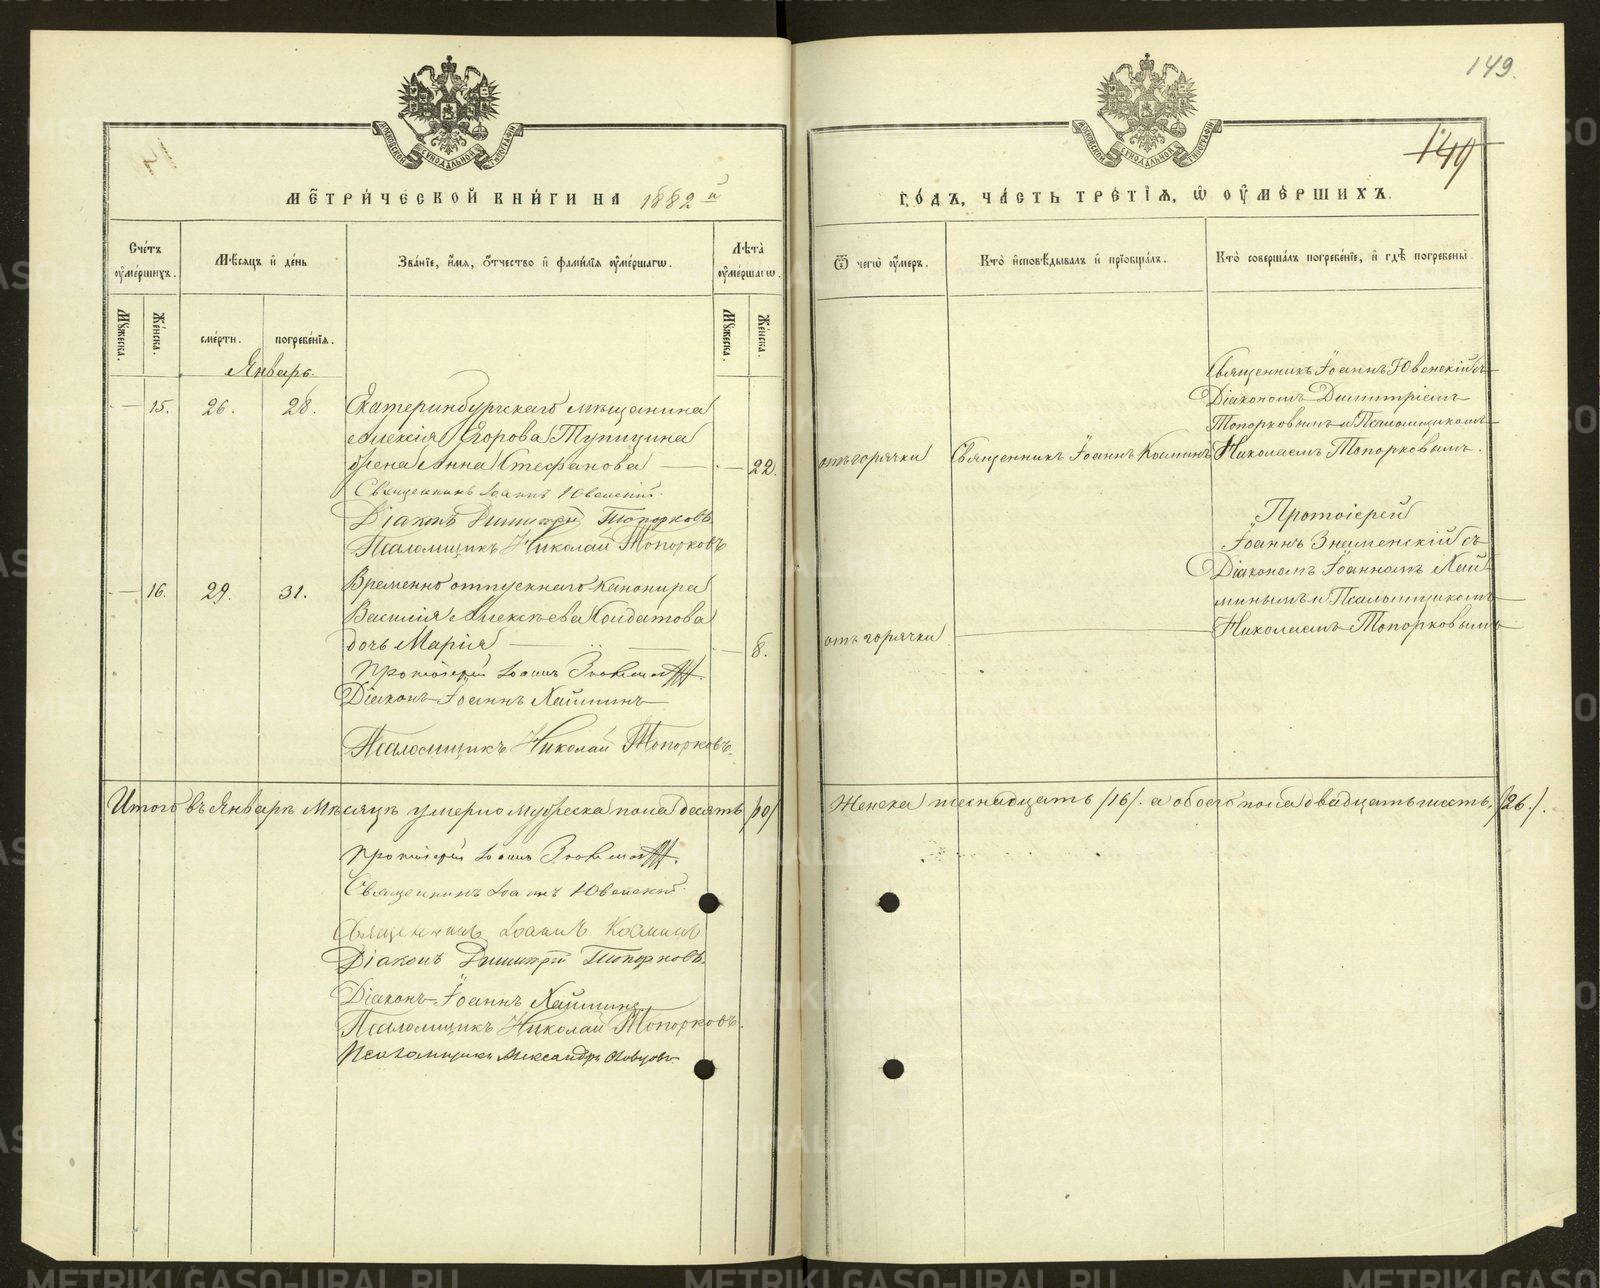 149.
149
МОСКОВСКОЙ СѴНОДАЛЬНОЙ ТИПОГРАФІИ
МОСКОВСКОЙ СѴНОДАЛЬНОЙ ТИПОГРАФІИ
МЕТРИ́ЧЕСКОЙ КНИ́ГИ НА 1882й
ГО́ДЪ, ЧА́СТЬ ТРЕ́ТІЯ, Ѡ ОУМЕ́РШИХЪ.
Сче́тъ оумéршихъ.
Мѣсяцъ и де́нь
Зва́ніе, и́мя, о́тчество и фами́лія оуме́ршагѡ.
Лѣта̀ оуме́ршагѡ.
Ѿ чегѡ̀ оу́меръ.
Кто̀ исповѣ́дывалъ и пріобща́лъ.
Кто̀ соверша́лъ погребе́ніе, и гдѣ̀ погребены̀
Мꙋ́жеска.
Же́нска.
сме́рти.
погребе́нія.
Мꙋ́жеска.
Же́нска.
Январь.
15. 26. 28. Екатеринбургскаго мѣщанина
Алексія Егорова Тупицина
жена Анна Стефанова — 22.
Священникъ Іоаннъ Ювенскій.
Діаконъ Димитрій Топорковъ
Псаломщикъ Николай Топорковъ
отъ горячки
Священникъ Іоаннъ Коминъ
Священникъ Іоаннъ Ювенскій съ
Діакономъ Димитріемъ
Топорковымъ и Псаломщикомъ
Николаемъ Топорковымъ.
16. 29. 31. Временно отпускнаго канонира
Василія Алексѣева Солдатова
дочь Марія — 8.
Протоіерей Іоаннъ
Діаконъ Іоаннъ Хайминъ
Псаломщикъ Николай Топорковъ.
отъ горячки
Протоіерей
Іоаннъ Знаменскій съ
Діакономъ Іоанномъ Хай-
минымъ и Псаломщикомъ
Николаемъ Топорковымъ
Итого въ Январѣ мѣсяцѣ умерло мужеска пола десять /10/
Женска шестнадцать /16/. а обоего пола двадцать шесть, /26/.
Протоіерей Іоаннъ
Священникъ Іоаннъ Ювенскій.
Священникъ Іоаннъ Коминъ
Діаконъ Димитрій Топорковъ.
Діаконъ Іоаннъ Хайминъ
Псаломщикъ Николай Топорковъ.
Псаломщикъ Александръ
METRIKI.GASO-URAL.RU